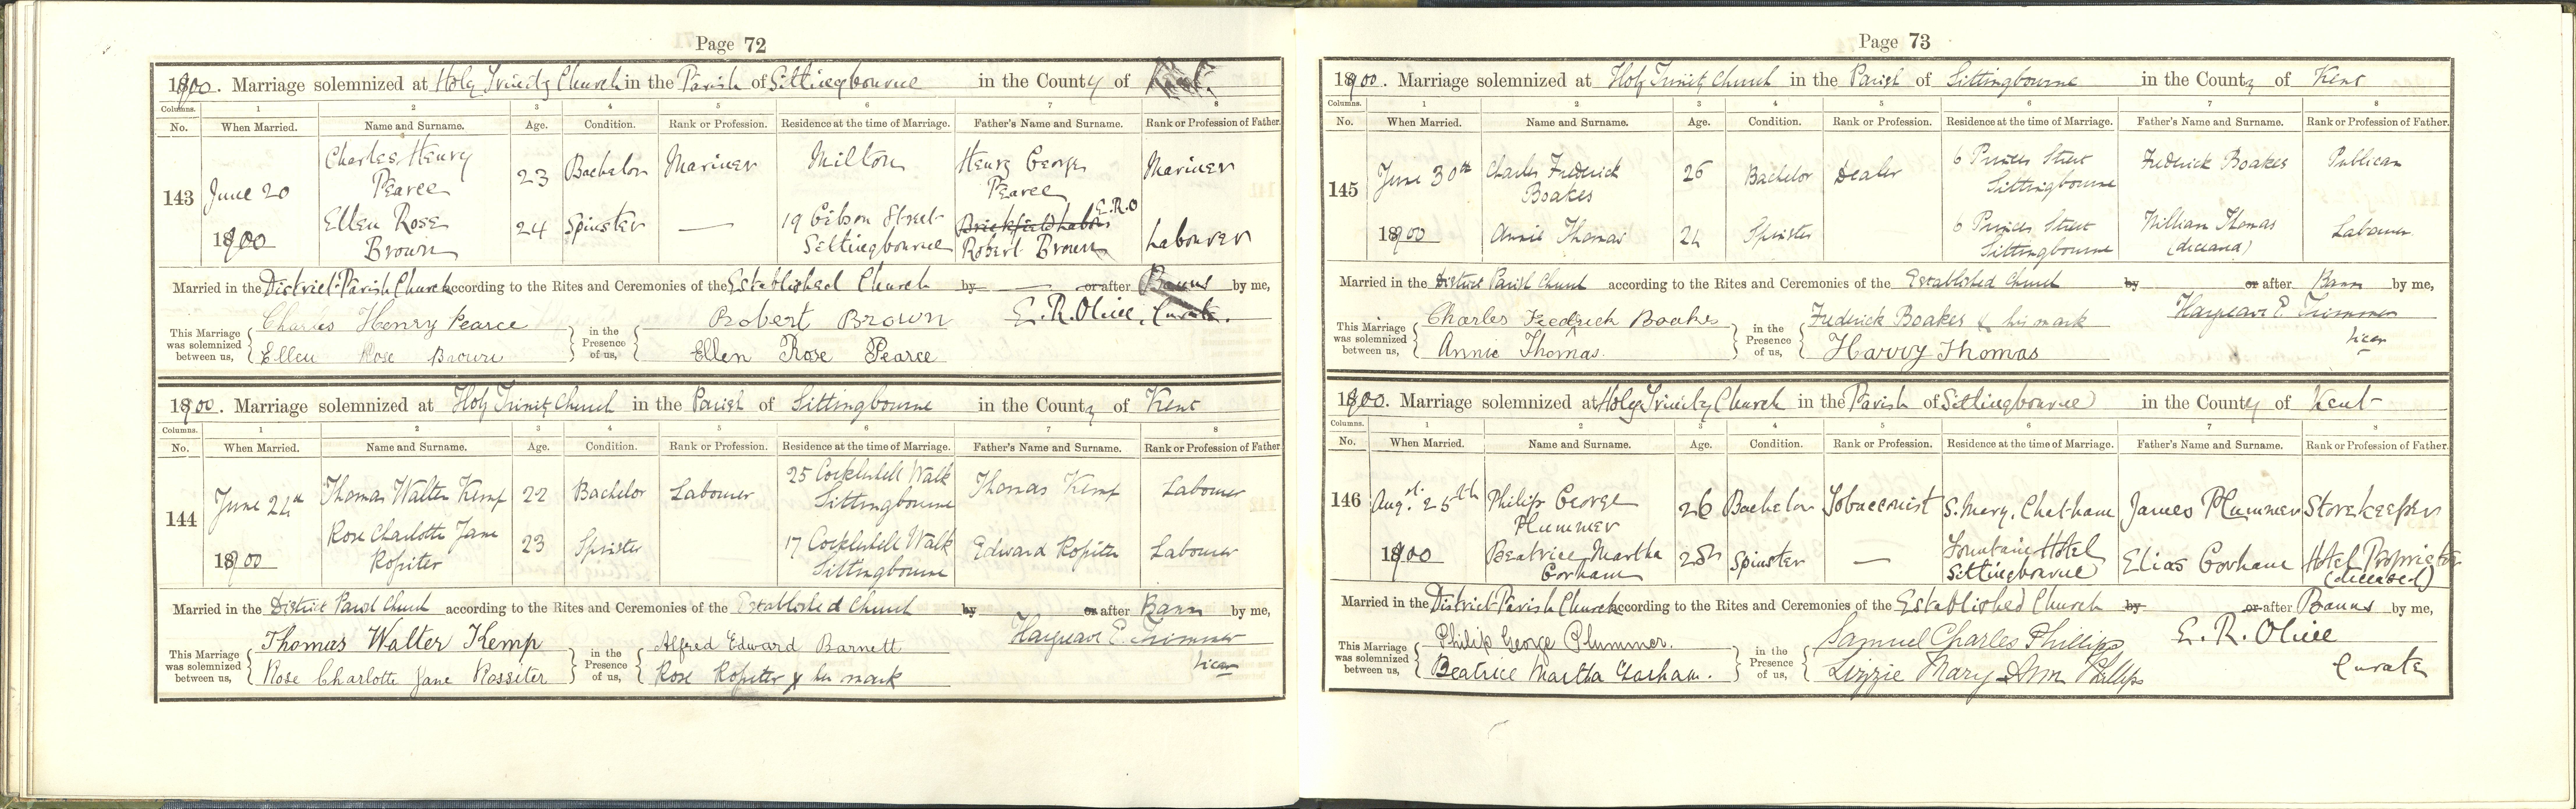 Page 72
1900. Marriage solemnized at Holy Trinity Church in the Parish of Sittingbourne in the County of
Columns. 1 2 3 4 5 6 7 8
No. When Married. Name and Surname. Age. Condition. Rank or Profession. Residence at the time of Marriage. Father's Name and Surname. Rank or Profession of Father.
143 June 20 1900 Charles Henry Pearce 23 Bachelor Mariner Milton Henry George Pearce Mariner
Ellen Rose Brown 24 Spinster — 19 Gibson Street Sittingbourne Brickfield Labor E.R.O Robert Brown Labourer
Married in the District Parish Church according to the Rites and Ceremonies of the Established Church by — or after Banns by me,
This Marriage was solemnized between us, Charles Henry Pearce in the Presence of us, Robert Brown E. R. Olive, Curate.
Ellen Rose Brown Ellen Rose Pearce
1900. Marriage solemnized at Holy Trinity Church in the Parish of Sittingbourne in the County of Kent
Columns. 1 2 3 4 5 6 7 8
No. When Married. Name and Surname. Age. Condition. Rank or Profession. Residence at the time of Marriage. Father's Name and Surname. Rank or Profession of Father
144 June 24th 1900 Thomas Walter Kemp 22 Bachelor Labourer 25 Cockleshell Walk Sittingbourne Thomas Kemp Labourer
Rose Charlotte Jane Rossiter 23 Spinster — 17 Cockleshell Walk Sittingbourne Edward Rossiter Labourer
Married in the District Parish Church according to the Rites and Ceremonies of the Established Church by or after Banns by me,
This Marriage was solemnized between us, Thomas Walter Kemp in the Presence of us, Alfred Edward Barnett Hargreave E. Trimmer
Rose Charlotte Jane Rossiter Rose Rossiter x her mark Vicar
Page 73
1900. Marriage solemnized at Holy Trinity Church in the Parish of Sittingbourne in the County of Kent
Columns. 1 2 3 4 5 6 7 8
No. When Married. Name and Surname. Age. Condition. Rank or Profession. Residence at the time of Marriage. Father's Name and Surname. Rank or Profession of Father.
145 June 30th 1900 Charles Frederick Boakes 26 Bachelor Dealer 6 Princes Street Sittingbourne Frederick Boakes Publican
Annie Thomas 24 Spinster 6 Princes Street Sittingbourne William Thomas (deceased) Labourer
Married in the District Parish Church according to the Rites and Ceremonies of the Established Church by or after Banns by me,
This Marriage was solemnized between us, Charles Fredrick Boakes in the Presence of us, Frederick Boakes x his mark Hargreave E. Trimmer
Annie Thomas. Harry Thomas Vicar
1900. Marriage solemnized at Holy Trinity Church in the Parish of Sittingbourne in the County of Kent
Columns. 1 2 3 4 5 6 7 8
No. When Married. Name and Surname. Age. Condition. Rank or Profession. Residence at the time of Marriage. Father's Name and Surname. Rank or Profession of Father.
146 Augst. 25th 1900 Philip George Plummer 26 Bachelor Tobacconist S. Mary, Chatham James Plummer Storekeeper
Beatrice Martha Gorham Spinster — Fountain Hotel Sittingbourne Elias Gorham Hotel Proprietor (deceased)
Married in the District Parish Church according to the Rites and Ceremonies of the Established Church by or after Banns by me,
This Marriage was solemnized between us, Philip George Plummer. in the Presence of us, Samuel Charles Phillips E. R. Olive
Beatrice Martha Gorham. Lizzie Mary Ann Phillips Curate